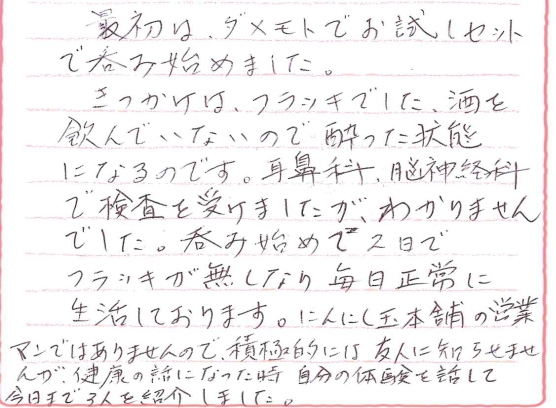 最初は、ダメモトでお試しセット
で呑み始めました。
きっかけは、フラッキでした、酒を
飲んでいないので酔った状態
になるのです。耳鼻科、脳神経科
で検査を受けましたが、わかりません
でした。呑み始めて2日で
フラッキが無しなり毎日正常に
生活しております。にんにく玉本舗の営業
マンではありませんので、積極的には友人に知らせませ
んが、健康の話になった時自分の体験を話して
今日まで3人を紹介しました。